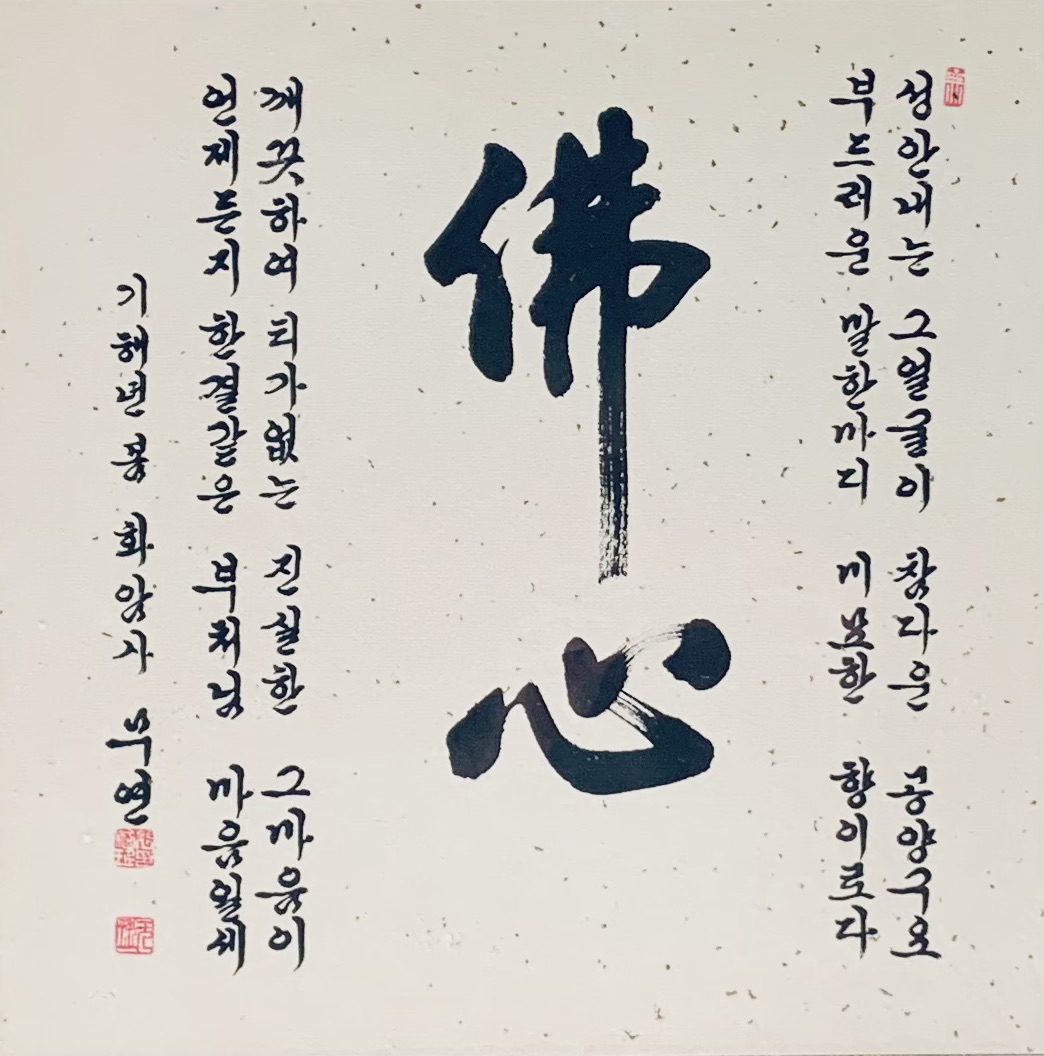 성안내는 그얼굴이 참다운 공양구요
부드러운 말한마디 미묘한 향이로다
佛心
깨끗하여 티가없는 진실한 그마음이
언제든지 한결같은 부처님 마음일세
기해년 봄 화암사